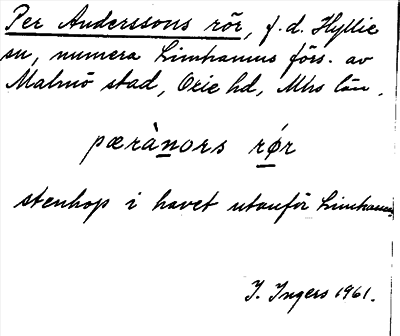 Per Anderssons rör, f.d. Hyllie
sn, numera Limhamns förs. av
Malmö stad, Oxie hd, Mhs län.
pærànors rǿr
stenhop i havet utanför Limhamn.
I. Ingers 1961.